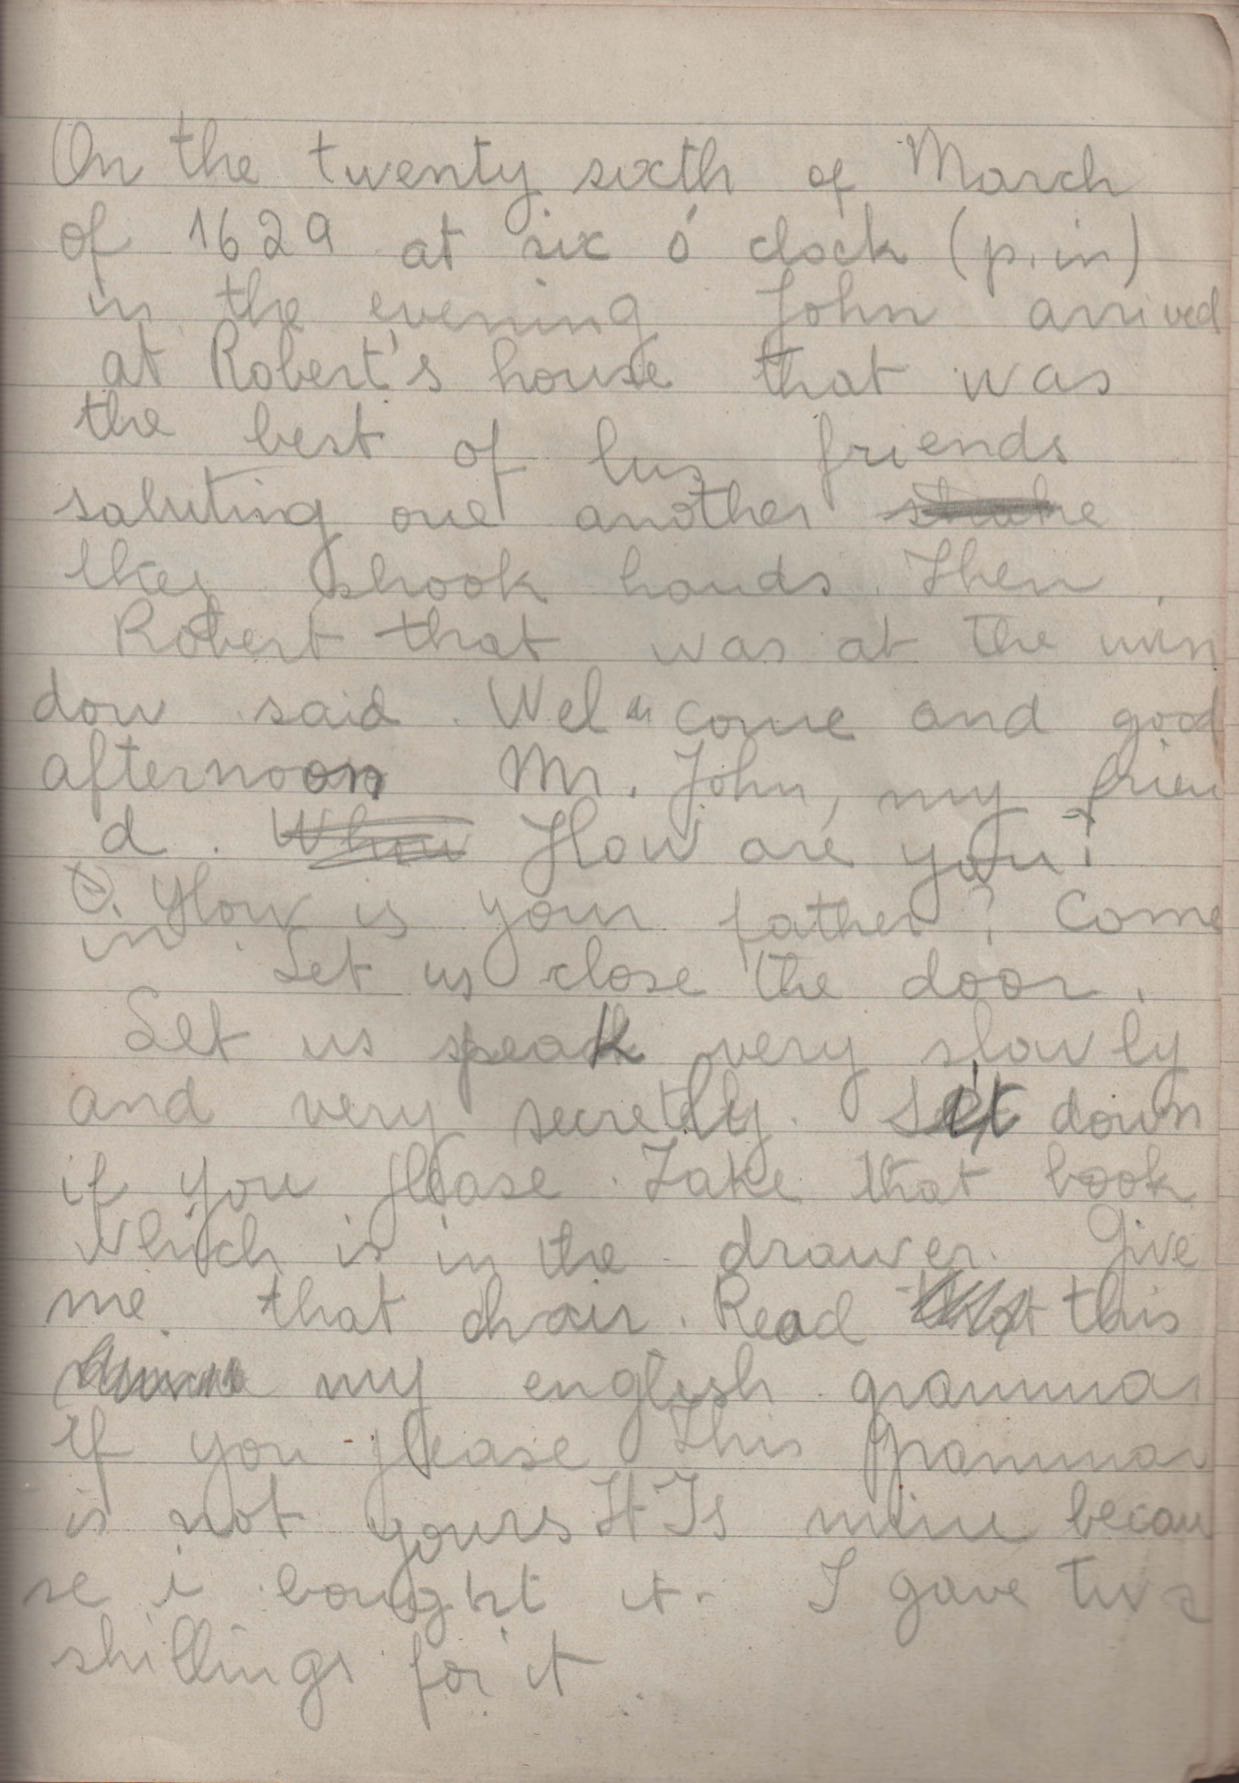 On the twenty sixth of March
of 1629 at six o' clock (p. in)
in the evening John arrived
at Robert's house that was
the best of his friends
saluting one another
they shook hands. Then
Robert that was at the win
dow said. Wel come and good
afternoon Mr. John, my frien
d. How are you?
How is your father? Come
in. Let us close the door.
Let us speak very slowly
and very secretly. Sit down
if you please. Take that book
which is in the drawer. Give
me that chair. Read this
my english grammar
if you please This grammar
is not yours It Is mine becau
se i bought it. I gave two
shillings for it.